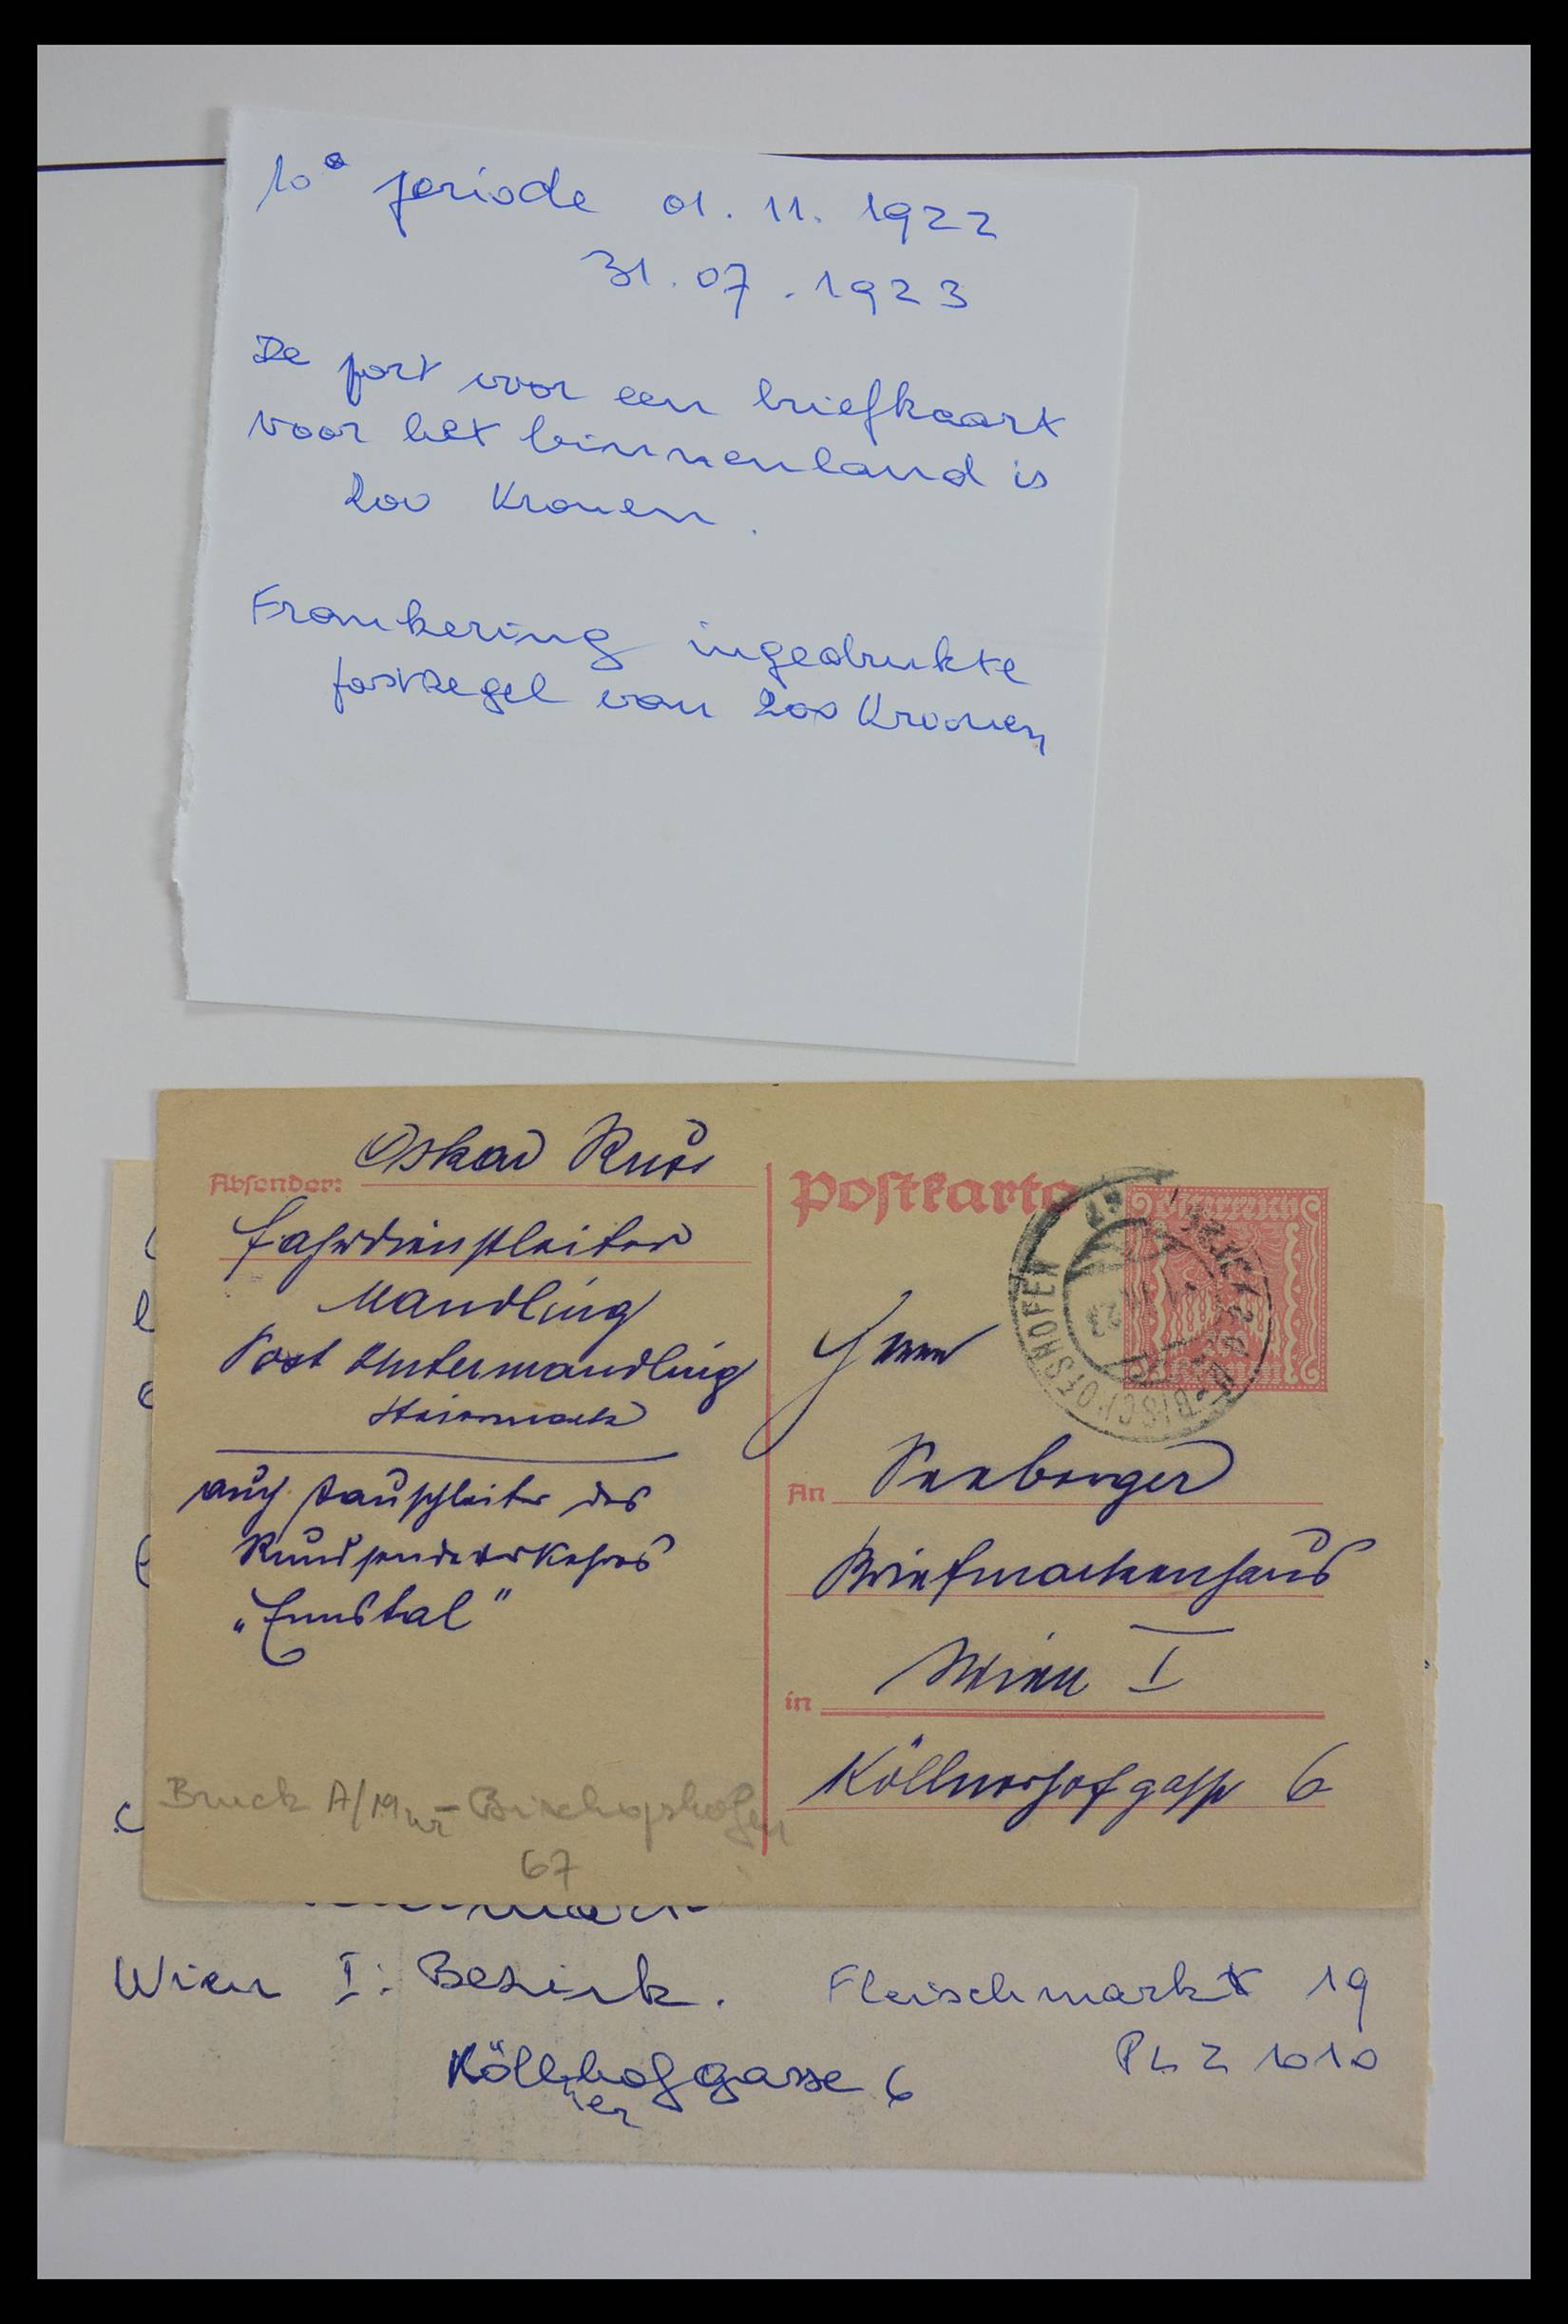 10e periode 01.11.1922
31.07.1923
De port voor een briefkaart
voor het binnenland is
200 Kronen.
Frankering ingedrukte
postzegel van 200 Kronen
Oskar
Absender:
Fahrdienstleiter
Mandling
Post Untermandling
Steiermark
auch Tauschleiter des
Rundsendeverkehres
„Ennstal"
Bruck A/Mur - Bischofshofen
67
Postkarte
Österreich
BISCHOFSHOFEN
Herrn
An Seeberger
Briefmarkenhaus
in Wien I
Köllnerhofgasse 6
Wien I. Bezirk. Fleischmarkt 19
PLZ 1010
Köllnerhofgasse 6